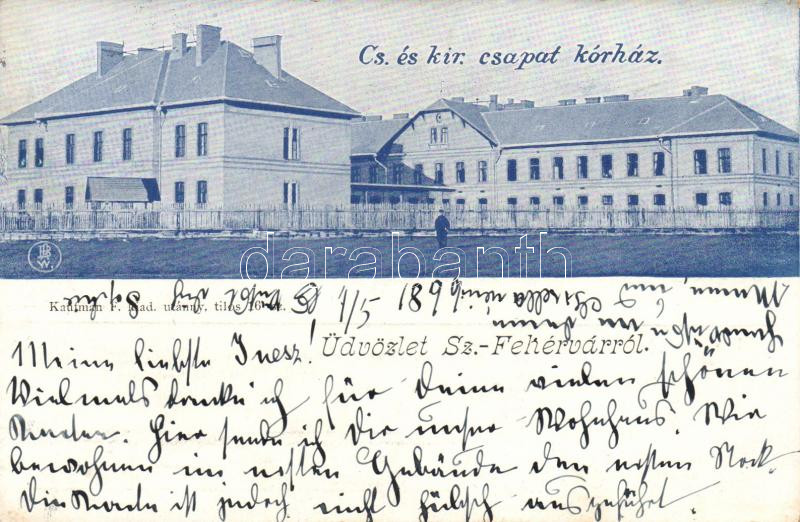 Cs. és kir. csapat kórház.
darabanth
Kaufman F. kiad. utánny. tilos 16 sz.
1/5 1899
Üdvözlet Sz.-Fehérvárról.
Meine liebste Inesz!
Vielmals danke ich für Deine vielen schönen
Karten. Hier sende ich Dir unser Wohnhaus. Wir
bewohnen im ersten Gebäude den ersten Stock.
Die Karte ist jedoch nicht hübsch ausgeführt.